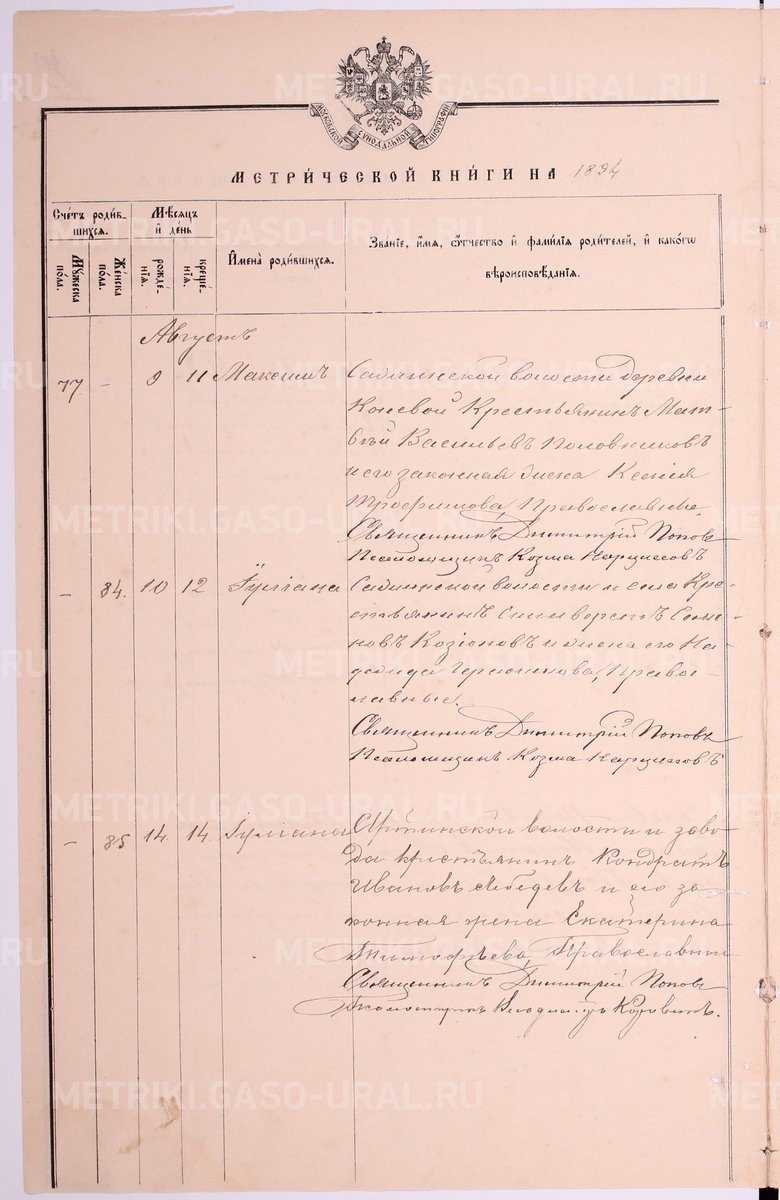 METRIKI.GASO-URAL.RU
МОСКОВСКОЙ СѴНОДАЛЬНОЙ ТИПОГРАФІИ
МЕТРИ́ЧЕСКОЙ КНИ́ГИ НА 1894
Сче́тъ роди́вшихся.
Мѣ́сяцъ и҆ де́нь
Имена̀ роди́вшихся.
Зва́ніе, и҆́мя, ѻ҆́тчество и҆ фами́лія роди́телей, и҆ како́гѡ
вѣроисповѣ́данія.
Мꙋ́жеска по́ла.
Же́нска по́ла.
рожде́нія.
креще́нія.
Августъ
77 – 9 11 Максимъ
волости деревни
Коневой Крестьянинъ Мат-
вѣй Васильевъ Половниковъ
и его законная жена Ксенія
Трофимова, Православные.
Священникъ Димитрій Поповъ
Псаломщикъ Козма Нарциссовъ
– 84. 10 12 Іуліана
волости и села Кре-
стьянинъ
новъ Козіоновъ и жена его На-
дежда Герасимова, Право-
славные.
Священникъ Димитрій Поповъ
Псаломщикъ Козма Нарциссовъ
– 85 14 14 Іуліана
Артинской волости и заво-
да крестьянинъ Кондратъ
Ивановъ Лебедевъ и его за-
конная жена Екатерина
Тимофѣева, Православныи
Священникъ Димитрій Поповъ
Псаломщикъ Владиміръ Коровинъ.